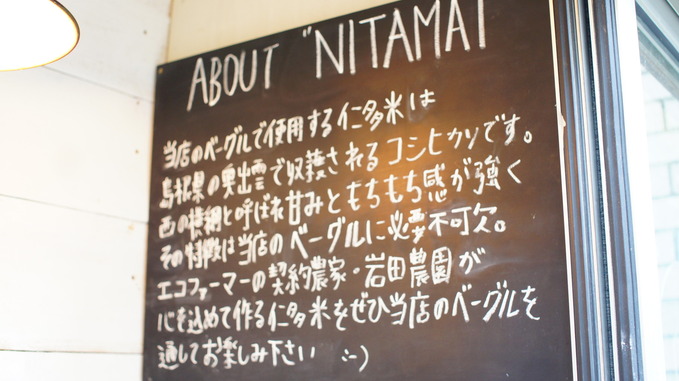 ABOUT "NITAMAI
当店のベーグルで使用する仁多米は
島根県の奥出雲で収穫されるコシヒカリです。
西の横綱と呼ばれ甘みともちもち感が強く
その特徴は当店のベーグルに必要不可欠。
エコファーマーの契約農家・岩田農園が
心を込めて作る仁多米をぜひ当店のベーグルを
通してお楽しみ下さい :-)